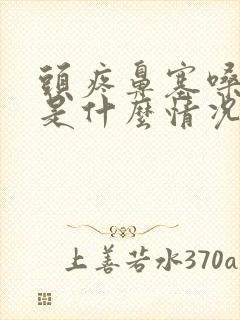 頭疼鼻塞嗓
是什麼情況
上善若水370a